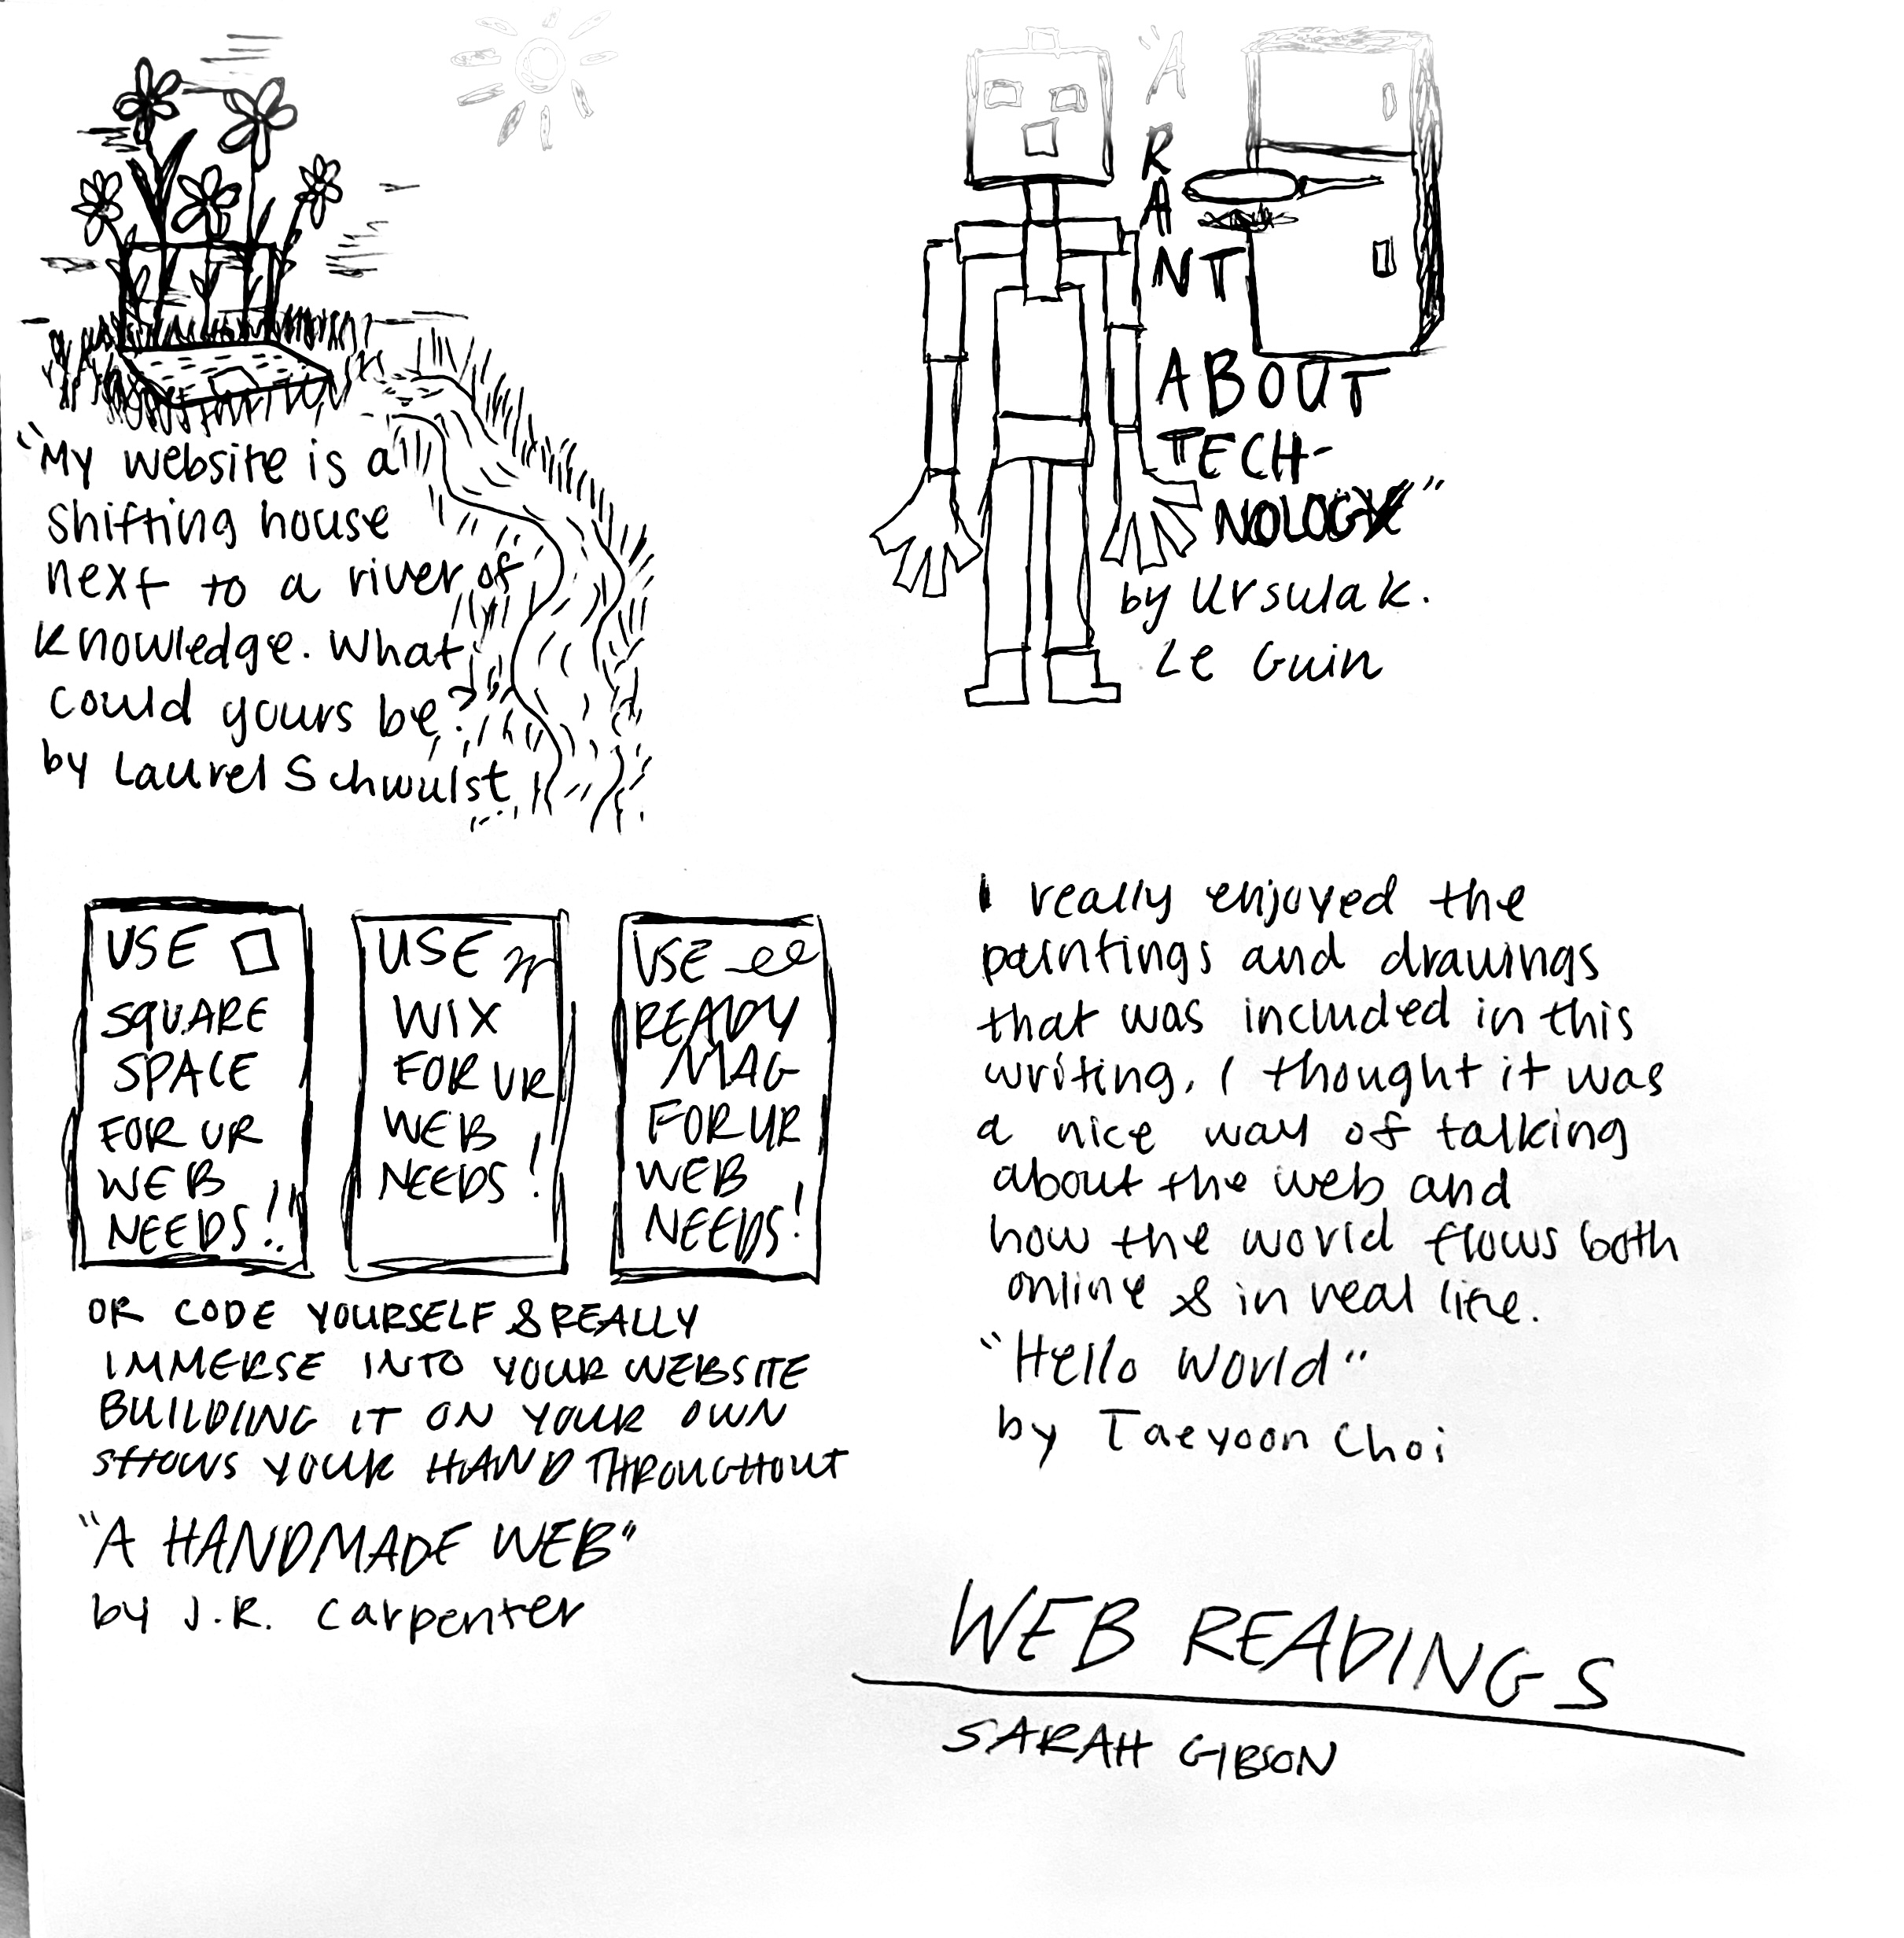 "My website is a
shifting house
next to a river of
knowledge. What
could yours be?"
by Laurel Schwulst
"A
RANT
ABOUT
TECH-
NOLOGY"
by Ursula K.
Le Guin
USE
SQUARE
SPACE
FOR UR
WEB
NEEDS!!
USE
WIX
FOR UR
WEB
NEEDS!
USE
READY
MAG
FOR UR
WEB
NEEDS!
OR CODE YOURSELF & REALLY
IMMERSE INTO YOUR WEBSITE
BUILDING IT ON YOUR OWN
SHOWS YOUR HAND THROUGHOUT
"A HANDMADE WEB"
by J.R. Carpenter
I really enjoyed the
paintings and drawings
that was included in this
writing. I thought it was
a nice way of talking
about the web and
how the world flows both
online & in real life.
"Hello World"
by Taeyoon Choi
WEB READINGS
SARAH GIBSON